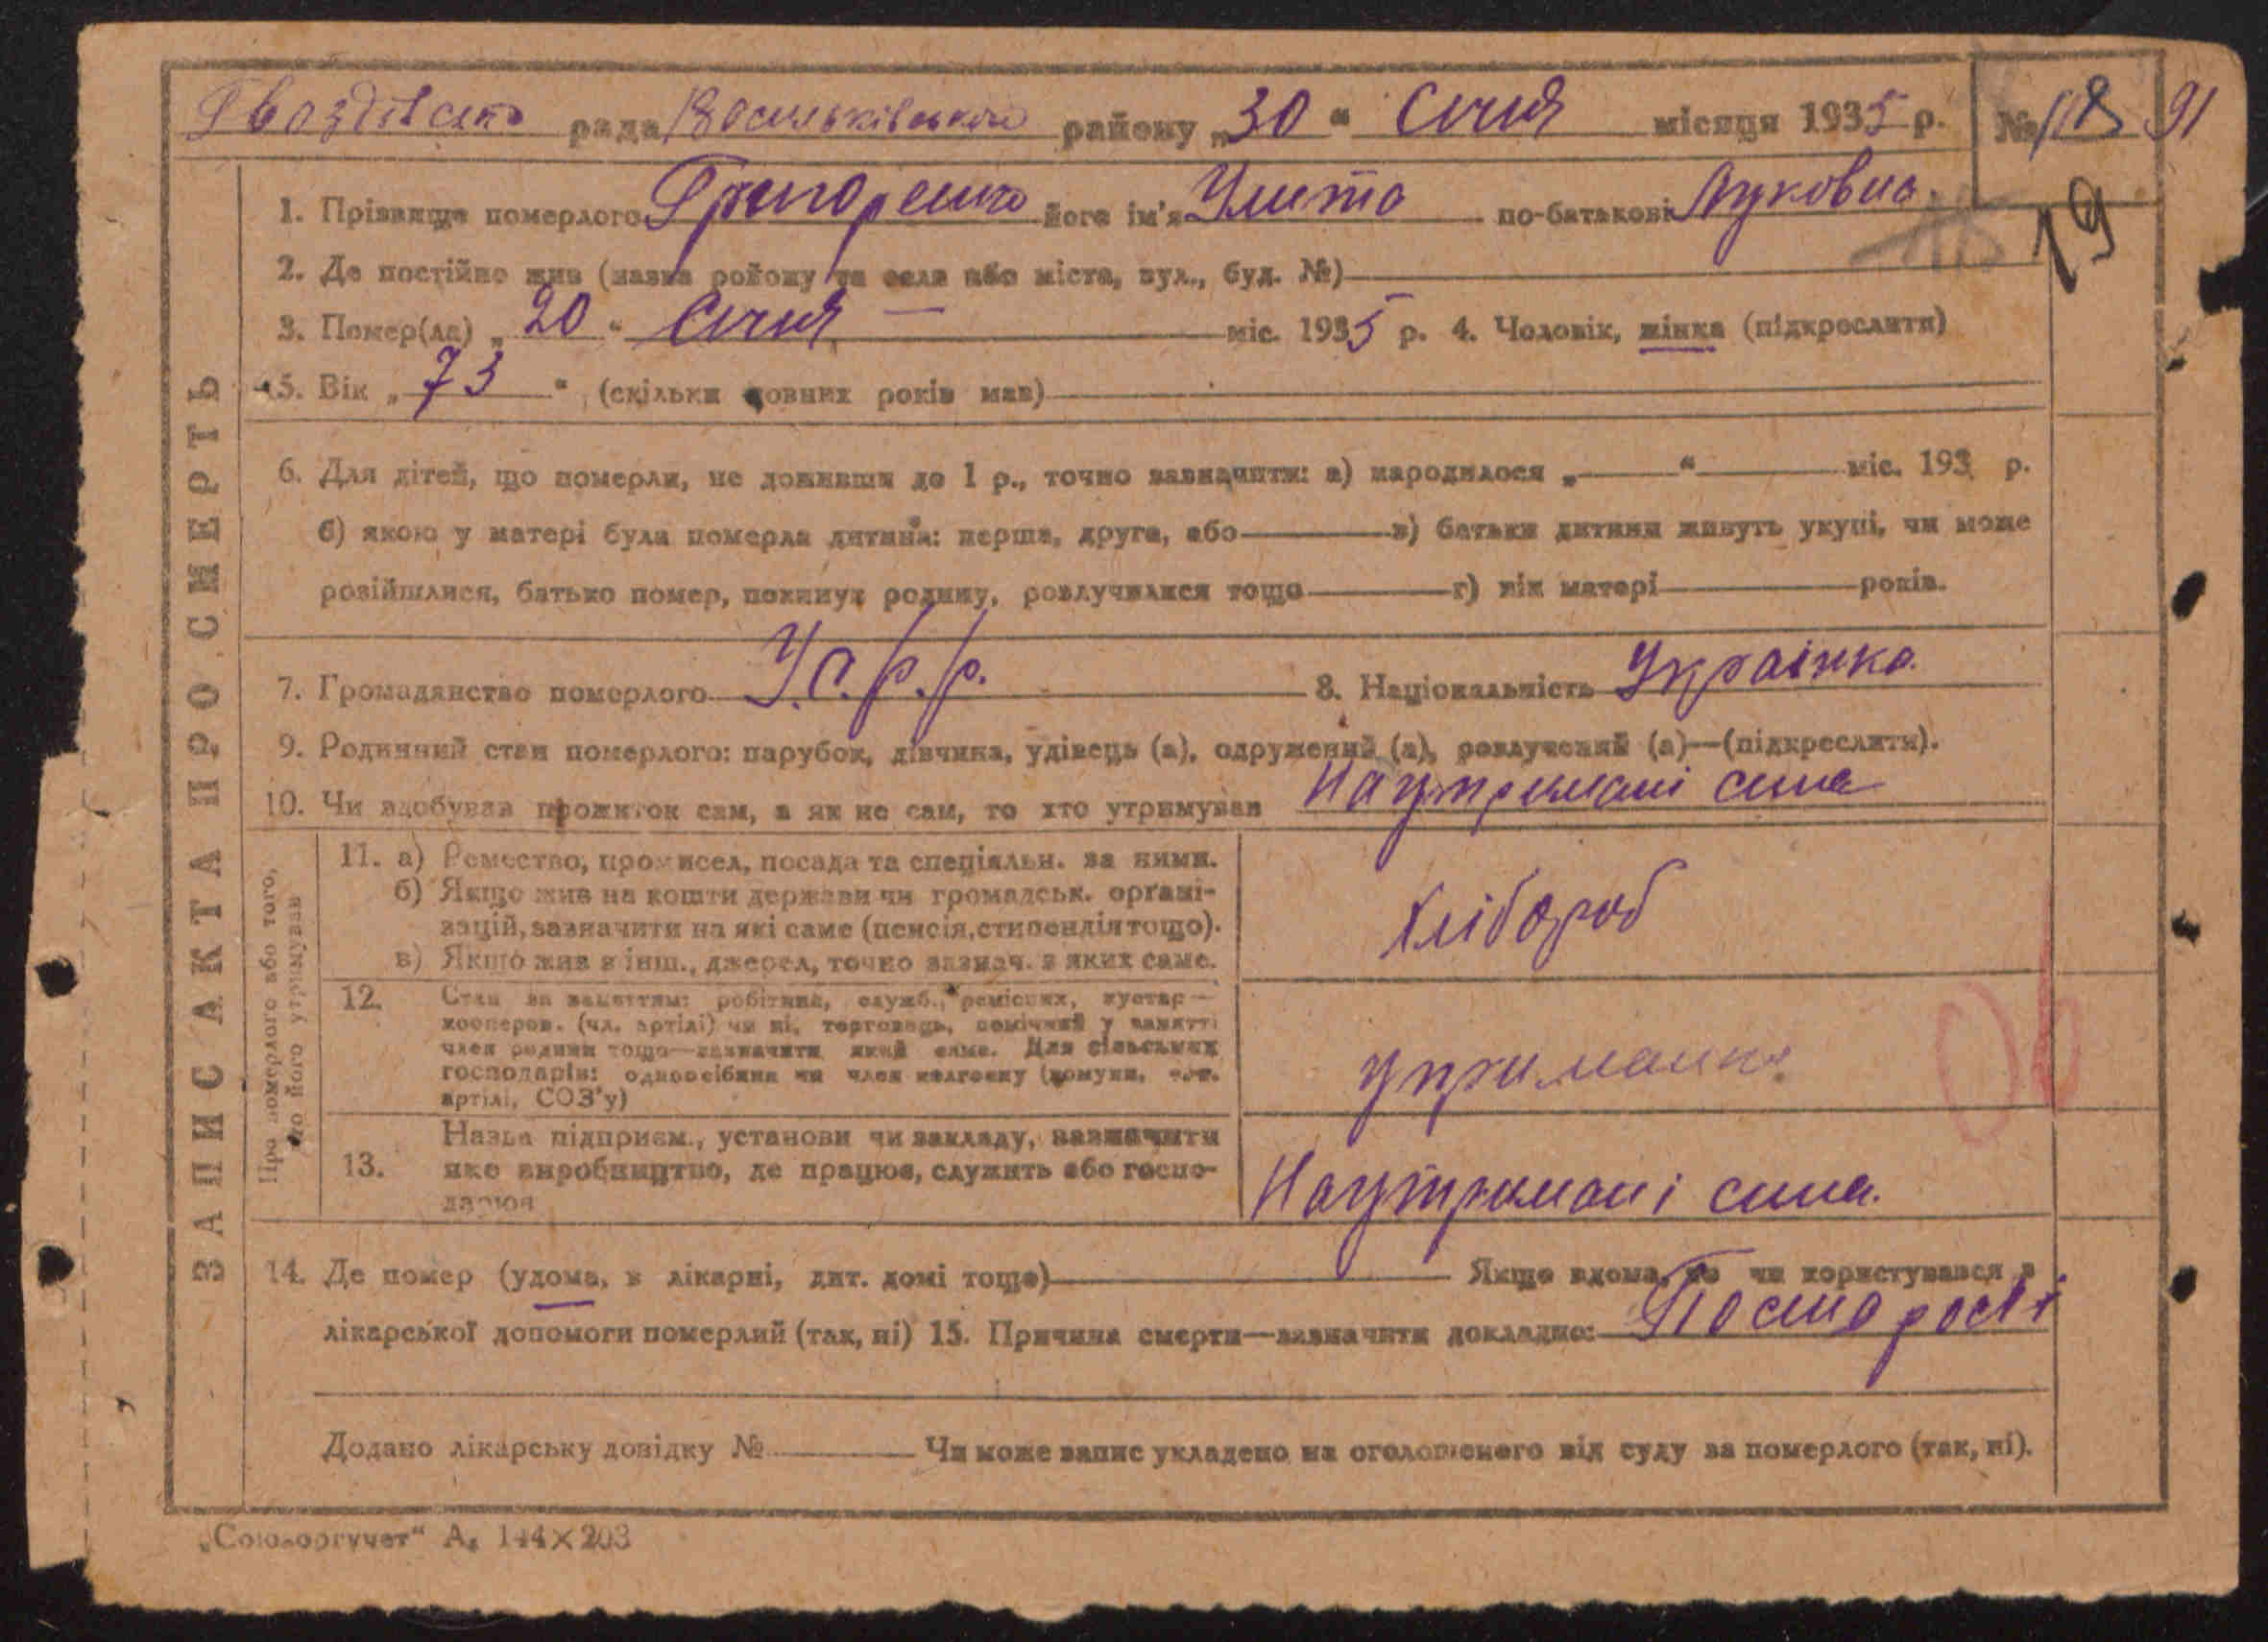 Гвоздівська рада Васильківського району „30“ Січня місяця 1935 р. № 18 91
19
18
1. Прізвище померлого Григоренко його ім'я Улита по-батькові Луковна.
2. Де постійно жив (назва району та села або міста, вул., буд. №)
3. Помер(ла) „20“ Січня — міс. 1935 р. 4. Чоловік, жінка (підкреслити)
5. Вік „73“ (скільки повних років мав)
6. Для дітей, що померли, не доживши до 1 р., точно зазначити: а) народилося „ “ міс. 193 р.
б) якою у матері була померла дитина: перша, друга, або в) батьки дитини живуть укупі, чи може
розійшлися, батько помер, покинув родину, розлучилися тощо г) вік матері років.
7. Громадянство померлого У.С.Р.Р. 8. Національність Українка.
9. Родинний стан померлого: парубок, дівчина, удівець (а), одружений (а), розлучений (а)—(підкреслити).
10. Чи здобував прожиток сам, а як не сам, то хто утримував Наутримані сина
ЗАПИС АКТА ПРО СМЕРТЬ
Про померлого або того, хто його утримував
11. а) Ремество, промисел, посада та спеціяльн. за ними.
б) Якщо жив на кошти держави чи громадськ. органі-
зацій, зазначити на які саме (пенсія, стипендія тощо).
в) Якщо жив з інш., джерел, точно зазнач. з яких саме.
Хлібороб
12. Стан за заняттям: робітник, служб., ремісник, кустар—
кооперов. (чл. артілі) чи ні, торговець, помічний у занятті
член родини тощо—зазначити який саме. Для сільських
господарів: одноосібник чи член колгоспу (комуни, с.-г.
артілі, СОЗ'у)
06
13. Назва підприєм., установи чи закладу, зазначити
яке виробництво, де працює, служить або госпо-
дарює
Наутримані сина.
14. Де помер (удома, в лікарні, дит. домі тощо) Якщо вдома, то чи користувався з
лікарської допомоги померлий (так, ні) 15. Причина смерти—зазначити докладно: Постарості
Додано лікарську довідку № Чи може запис укладено на оголошеного від суду за померлого (так, ні).
„Союзоргучет“ А₅ 144×203